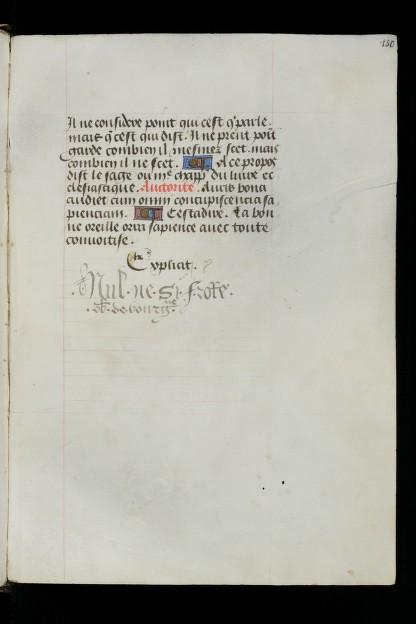 150
Il ne considere point qui cest q̃ parle.
mais q̃ cest qui dist. Il ne prent poīt
garde combien il mesmez scet. mais
combien il ne scet. A ce propos
dist le sage ou mᵉ chapp̃ du liure ec
clesiastique. Auctorite. Auris bona
audiet cum omni concupiscencia sa
pienciam. Cestadire. La bon
ne oreille orra sapience auec toute
conuoitise.
Explicit.
.Nul. ne. Si. frote.
de bourgⁿᵉ